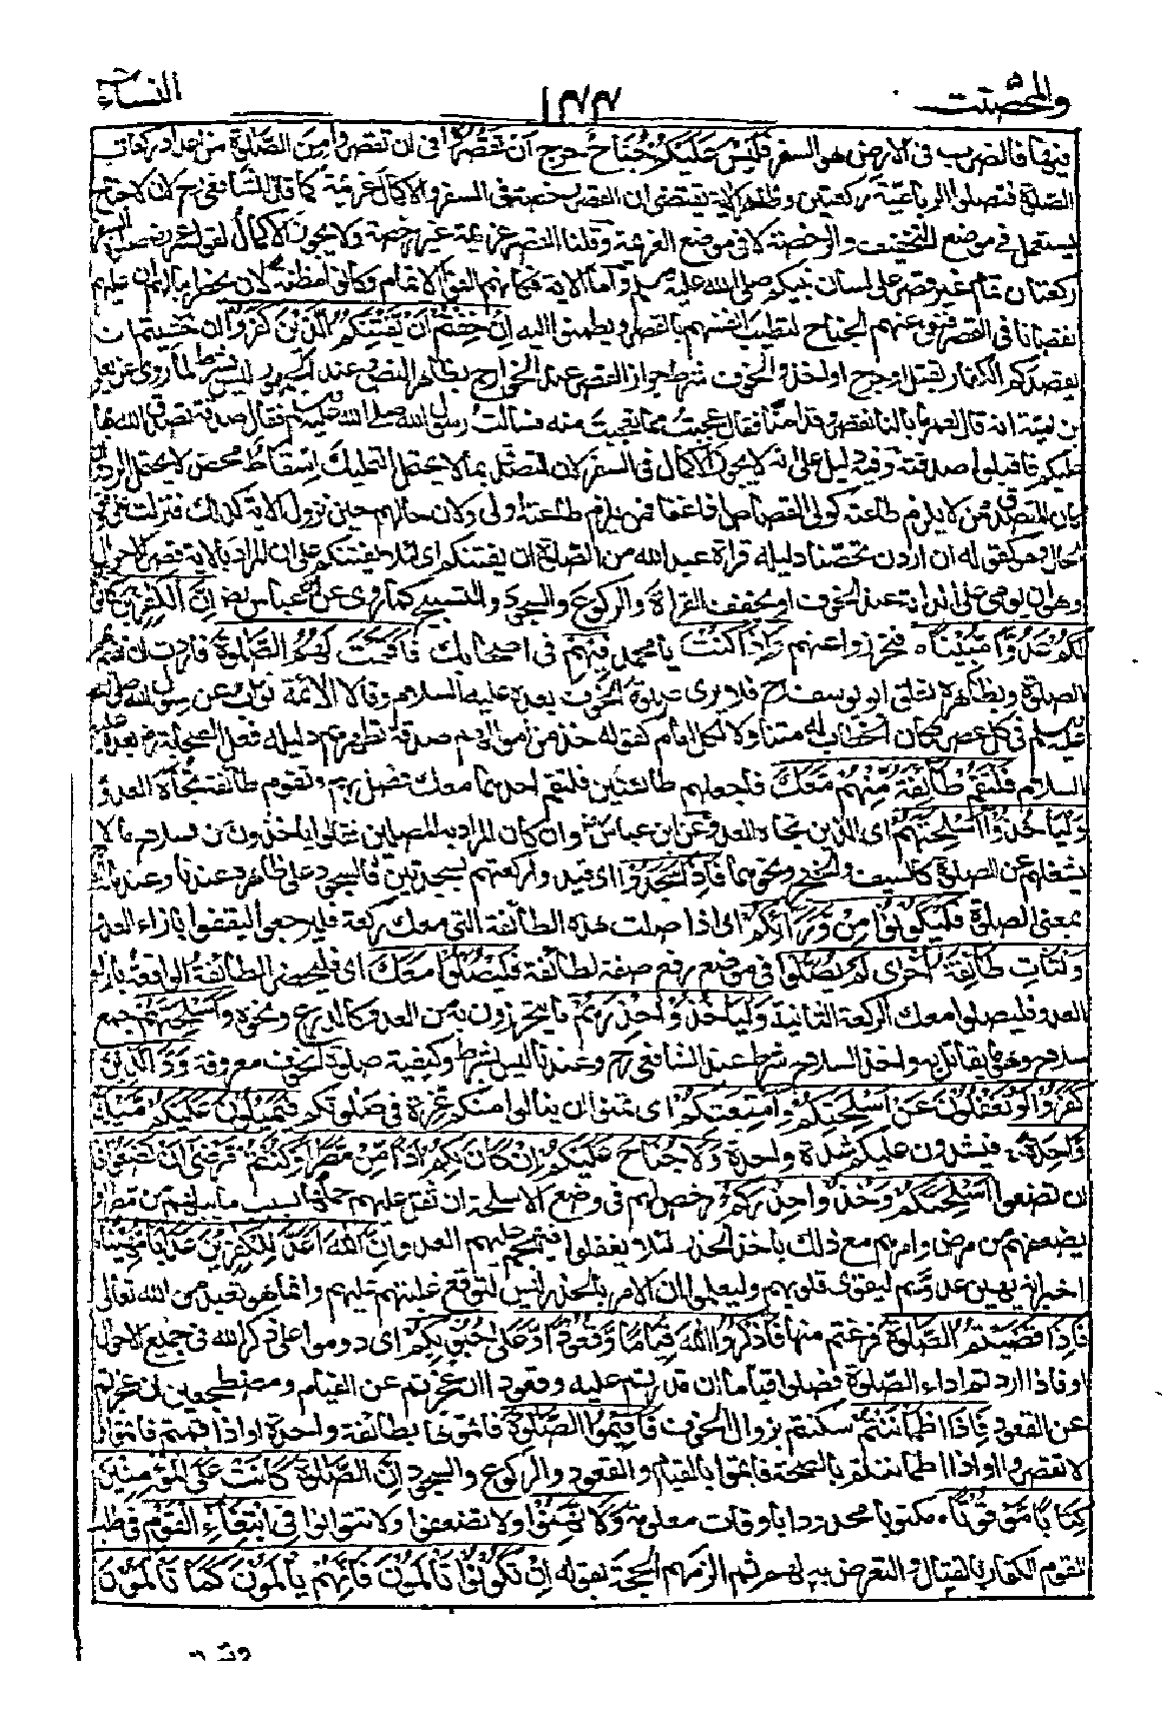 والمحصنت ١٧٧ النساء
فيها فالضرب فى الارض هو السفر فَلَيْسَ عَلَيْكُمْ جُنَاحٌ حرج اَنْ تَقْصُرُوْا فى ان تقصروا مِنَ الصَّلٰوةِ من اعداد ركعات
الصلوة فتصلوا الرباعية ركعتين وظاهر الاية يقتضى ان القصر رخصة فى السفر والاكمال عزيمة كما قال الشافعى رح لان لا جناح
يستعمل فى موضع التخفيف والرخصة لا فى موضع العزيمة وقلنا القصر عزيمة غير رخصة ولا يجوز الاكمال لقول عمر رضى صلوة السفر
ركعتان تمام غير قصر على لسان نبيكم صلى الله عليه وسلم واما الاية فكانهم الفوا الاتمام وكانوا مظنة لان يخطر ببالهم ان عليهم
نقصانا فى القصر فنفى عنهم الجناح لتطيب انفسهم بالقصر ويطمئنوا اليه اِنْ خِفْتُمْ اَنْ يَّفْتِنَكُمُ الَّذِيْنَ كَفَرُوْا ان خشيتم ان
يقصدكم الكفار بقتل او جرح او اخذ والخوف شرط جواز القصر عند الخوارج بظاهر النص وعند الجمهور ليس بشرط لما روى عن يعلى
بن امية انه قال لعمر ما بالنا نقصر وقد امنا فقال عجبت مما تعجبت منه فسالت رسول الله صلى الله عليه وسلم فقال صدقة تصدق الله بها
عليكم فاقبلوا صدقته وفيه دليل على انه لا يجوز الاكمال فى السفر لان التصدق بما لا يحتمل التمليك اسقاط محض لا يحتمل الرد وان
كان المتصدق ممن لا يلزم طاعته كولى القصاص اذا عفا فمن يلزم طاعته اولى ولان حالهم حين نزول الاية كذلك فنزلت على وفق
الحال وهو كقوله ان اردن تحصنا دليله قراءة عبد الله من الصلوة ان يفتنكم اى لئلا يفتنكم على ان المراد بالاية قصر الاحوال
وهو ان يومى على الدابة عند الخوف او يخفف القراءة والركوع والسجود والتسبيح كما روى عن ابن عباس رض اِنَّ الْكٰفِرِيْنَ كَانُوْا
لَكُمْ عَدُوًّا مُّبِيْنًا ۝ فتحرزوا عنهم وَاِذَا كُنْتَ يا محمد فِيْهِمْ فى اصحابك فَاَقَمْتَ لَهُمُ الصَّلٰوةَ فاردت ان تقيم
الصلوة وبظاهره تعلق ابو يوسف رح فلا يرى صلوة الخوف بعده عليه السلام وقالا الائمة نواب عن رسول الله صلى الله
عليه وسلم فى كل عصر فكان الخطاب له متناولا لكل امام كقوله خذ من اموالهم صدقة تطهرهم دليله فعل الصحابة رض بعده عليه
السلام فَلْتَقُمْ طَآئِفَةٌ مِّنْهُمْ مَّعَكَ فاجعلهم طائفتين فلتقم احدهما معك فصل بهم وتقوم طائفة تجاه العدو
وَلْيَاْخُذُوْٓا اَسْلِحَتَهُمْ اى الذين تجاه العدو عن ابن عباس رض وان كان المراد به المصلين فقالوا ياخذون من السلاح ما لا
يشغلهم عن الصلوة كالسيف والخنجر ونحوهما فَاِذَا سَجَدُوْا اى قيدوا ركعتهم بسجدتين فالسجود على ظاهره عندنا وعند مالك
بمعنى الصلوة فَلْيَكُوْنُوْا مِنْ وَّرَآئِكُمْ اى اذا صلت هذه الطائفة التى معك ركعة فليرجعوا ليقفوا بازاء العدو
وَلْتَاْتِ طَآئِفَةٌ اُخْرٰى لَمْ يُصَلُّوْا فى موضع رفع صفة لطائفة فَلْيُصَلُّوْا مَعَكَ اى فليحضر الطائفة الواقفة بازاء
العدو فليصلوا معك الركعة الثانية وَلْيَاْخُذُوْا حِذْرَهُمْ ما يتحرزون به من العدو كالدرع ونحوه وَاَسْلِحَتَهُمْ جمع
سلاح وهو ما يقاتل به واخذ السلاح شرط عند الشافعى رح وعندنا ليس بشرط وكيفية صلوة الخوف معروفة وَدَّ الَّذِيْنَ
كَفَرُوْا لَوْ تَغْفُلُوْنَ عَنْ اَسْلِحَتِكُمْ وَاَمْتِعَتِكُمْ اى تمنوا ان ينالوا منكم غرة فى صلوتكم فَيَمِيْلُوْنَ عَلَيْكُمْ مَّيْلَةً
وَّاحِدَةً ؕ فيشدون عليكم شدة واحدة وَلَا جُنَاحَ عَلَيْكُمْ اِنْ كَانَ بِكُمْ اَذًى مِّنْ مَّطَرٍ اَوْ كُنْتُمْ مَّرْضٰٓى اَنْ تَضَعُوْٓا
ان تضعوا اَسْلِحَتَكُمْ وَخُذُوْا حِذْرَكُمْ رخص لهم فى وضع الاسلحة ان ثقل عليهم حملها بسبب ما يبلهم من مطر او
يضعفهم من مرض وامرهم مع ذلك باخذ الحذر لئلا يغفلوا فيهجم عليهم العدو اِنَّ اللّٰهَ اَعَدَّ لِلْكٰفِرِيْنَ عَذَابًا مُّهِيْنًا
اخبر انه يهين عدوهم ليقوى قلوبهم وليعلموا ان الامر بالحذر ليس لتوقع غلبتهم عليهم وانما هو تعبد من الله تعالى
فَاِذَا قَضَيْتُمُ الصَّلٰوةَ فرغتم منها فَاذْكُرُوا اللّٰهَ قِيَامًا وَّقُعُوْدًا وَّعَلٰى جُنُوْبِكُمْ اى دوموا على ذكر الله فى جميع الاحوال
او فاذا اردتم اداء الصلوة فصلوا قياما ان قدرتم عليه وقعودا ان عجزتم عن القيام ومضطجعين ان عجزتم
عن القعود فَاِذَا اطْمَاْنَنْتُمْ سكنتم بزوال الخوف فَاَقِيْمُوا الصَّلٰوةَ فاتموها بطائفة واحدة او اذا اقمتم فاتموا و
لا تقصروا او اذا اطماننتم بالصحة فاتموا بالقيام والقعود والركوع والسجود اِنَّ الصَّلٰوةَ كَانَتْ عَلَى الْمُؤْمِنِيْنَ
كِتٰبًا مَّوْقُوْتًا ۝ مكتوبا محدودا باوقات معلومة وَلَا تَهِنُوْا ولا تضعفوا ولا تتوانوا فِى ابْتِغَآءِ الْقَوْمِ فى طلب
القوم الكفار بالقتال والتعرض به لهم ثم الزمهم الحجة بقوله اِنْ تَكُوْنُوْا تَاْلَمُوْنَ فَاِنَّهُمْ يَاْلَمُوْنَ كَمَا تَاْلَمُوْنَ